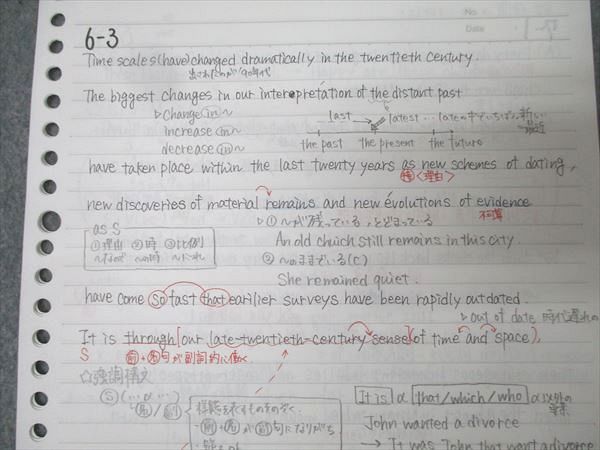 No
Date
6-3
Time scales (have) changed dramatically in the twentieth century.
The biggest changes in our interpretation of the distant past
▷change in~
increase in~
decrease in~
last
latest … lateの中でいちばん新しい
最近
the past the present the future
have taken place within the last twenty years as new schemes of dating,
接<理由>
new discoveries of material remains and new evolutions of evidence
不算
▷①~が残っている, とどまっている
An old church still remains in this city.
②~のままでいる(C)
She remained quiet.
as S
①理由 ②時 ③比例
~なので ~の時 ~につれ
have come so fast that earlier surveys have been rapidly outdated.
▷out of date 時代遅れの
It is through [our late-twentieth-century sense (of time and space),
S
前+名句が副詞的に働く
☆強調構文
It is α that/which/who
John wanted a divorce
→ It was John that want a divorce